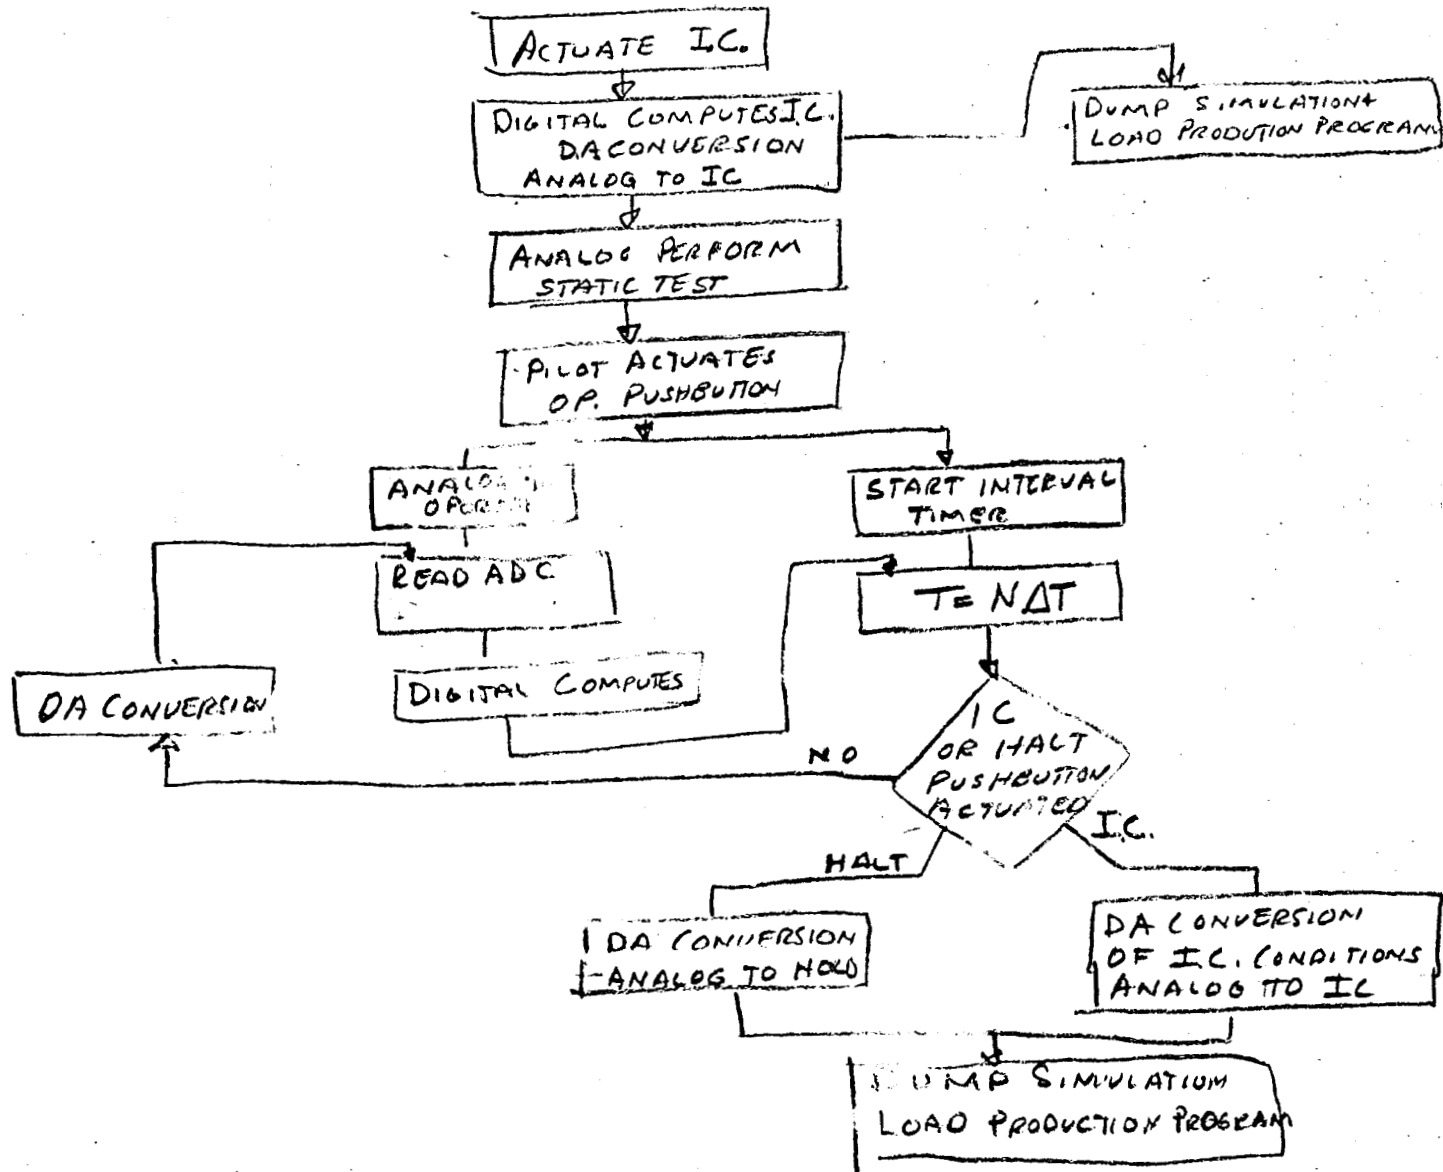 ACTUATE I.C.
DIGITAL COMPUTES I.C.
DA CONVERSION
ANALOG TO IC
DUMP SIMULATION +
LOAD PRODUTION PROGRAM
ANALOG PERFORM
STATIC TEST
PILOT ACTUATES
OP. PUSHBUTTON
ANALOG
START INTERVAL
TIMER
READ ADC
T = NΔT
DIGITAL COMPUTES
DA CONVERSION
IC
OR HALT
PUSHBUTTON
ACTUATED
NO
I.C.
HALT
DA CONVERSION
ANALOG TO HOLD
DA CONVERSION
OF I.C. CONDITIONS
ANALOG TO IC
DUMP SIMULATION
LOAD PRODUCTION PROGRAM